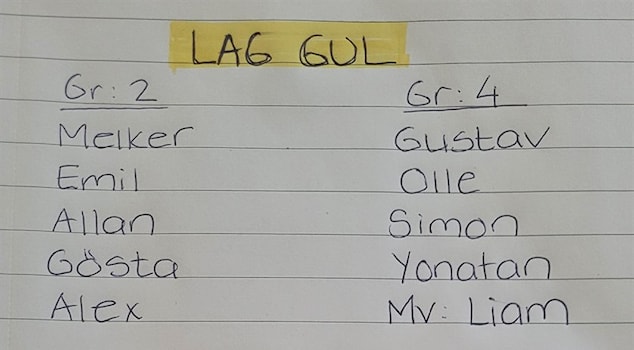 LAG GUL
Gr: 2
Melker
Emil
Allan
Gösta
Alex
Gr: 4
Gustav
Olle
Simon
Yonatan
Mv: Liam